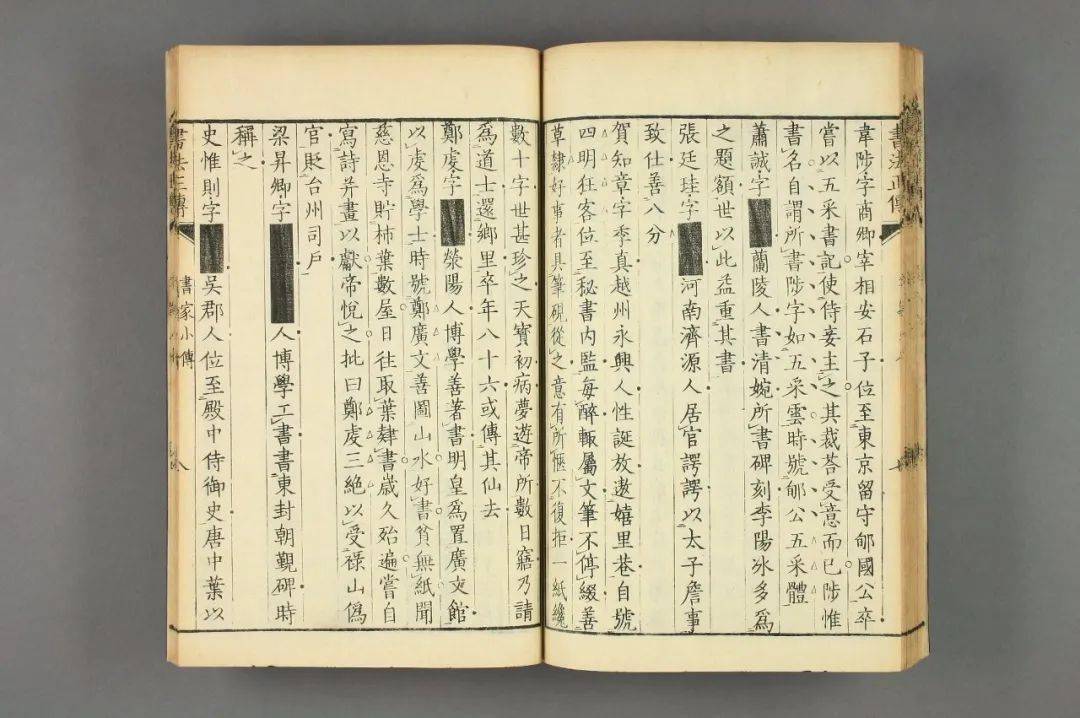 韋陟字商卿宰相安石子位至東京留守郇國公卒
嘗以五采書記使侍妾主之其裁荅受意而已陟惟
書名自謂所書陟字如五采雲時號郇公五采體
蕭誠字
蘭陵人書清婉所書碑刻李陽冰多爲
之題額世以此益重其書
張廷珪字
河南濟源人居官諤諤以太子詹事
致仕善八分
賀知章字季真越州永興人性誕放遨嬉里巷自號
四明狂客位至秘書內監每醉輒屬文筆不停綴善
草隸好事者具筆硯從之意有所愜不復拒一紙纔
數十字世甚珍之天寶初病夢遊帝所數日寤乃請
爲道士還鄉里卒年八十六或傳其仙去
鄭虔字
滎陽人博學善著書明皇爲置廣文館
以虔爲學士時號鄭廣文善圖山水好書貧無紙聞
慈恩寺貯柿葉數屋日往取葉肄書歲久殆遍嘗自
寫詩并畫以獻帝悅之批曰鄭虔三絕以受祿山僞
官貶台州司戶
梁昇卿字
人博學工書書東封朝覲碑時
稱之
史惟則字
吳郡人位至殿中侍御史唐中葉以
書家小傳
八